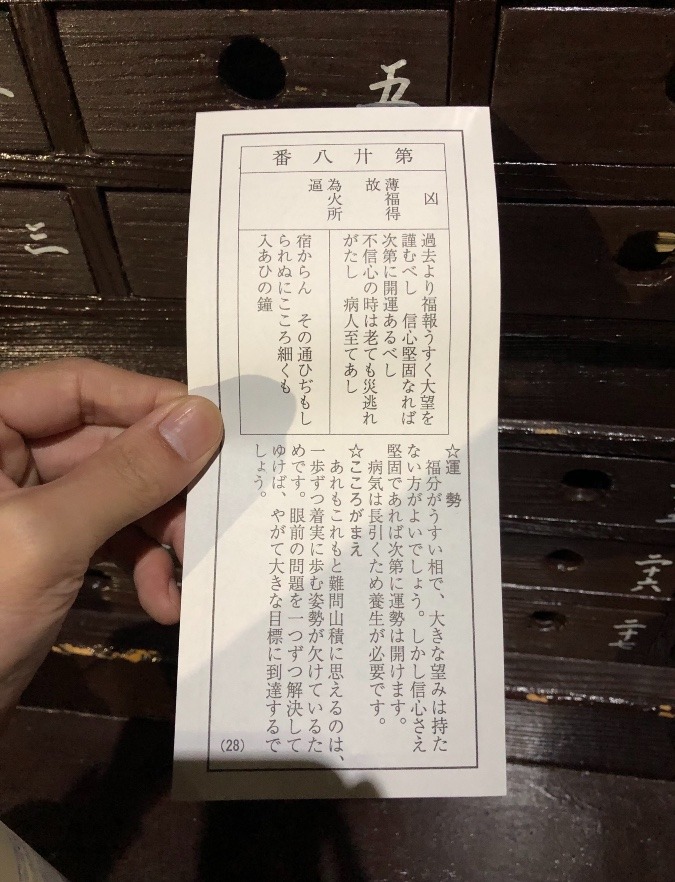 第廿八番
凶
薄福得
故
為火所
逼
過去より福報うすく大望を
謹むべし　信心堅固なれば
次第に開運あるべし
不信心の時は老ても災逃れ
がたし　病人至てあし
宿からん　その通ひぢもし
られぬにこころ細くも
入あひの鐘
☆運　勢
福分がうすい相で、大きな望みは持た
ない方がよいでしょう。しかし信心さえ
堅固であれば次第に運勢は開けます。
病気は長引くため養生が必要です。
☆こころがまえ
あれもこれもと難問山積に思えるのは、
一歩ずつ着実に歩む姿勢が欠けているた
めです。眼前の問題を一つずつ解決して
ゆけば、やがて大きな目標に到達するで
しょう。
(28)
五
三
二十六
二十七